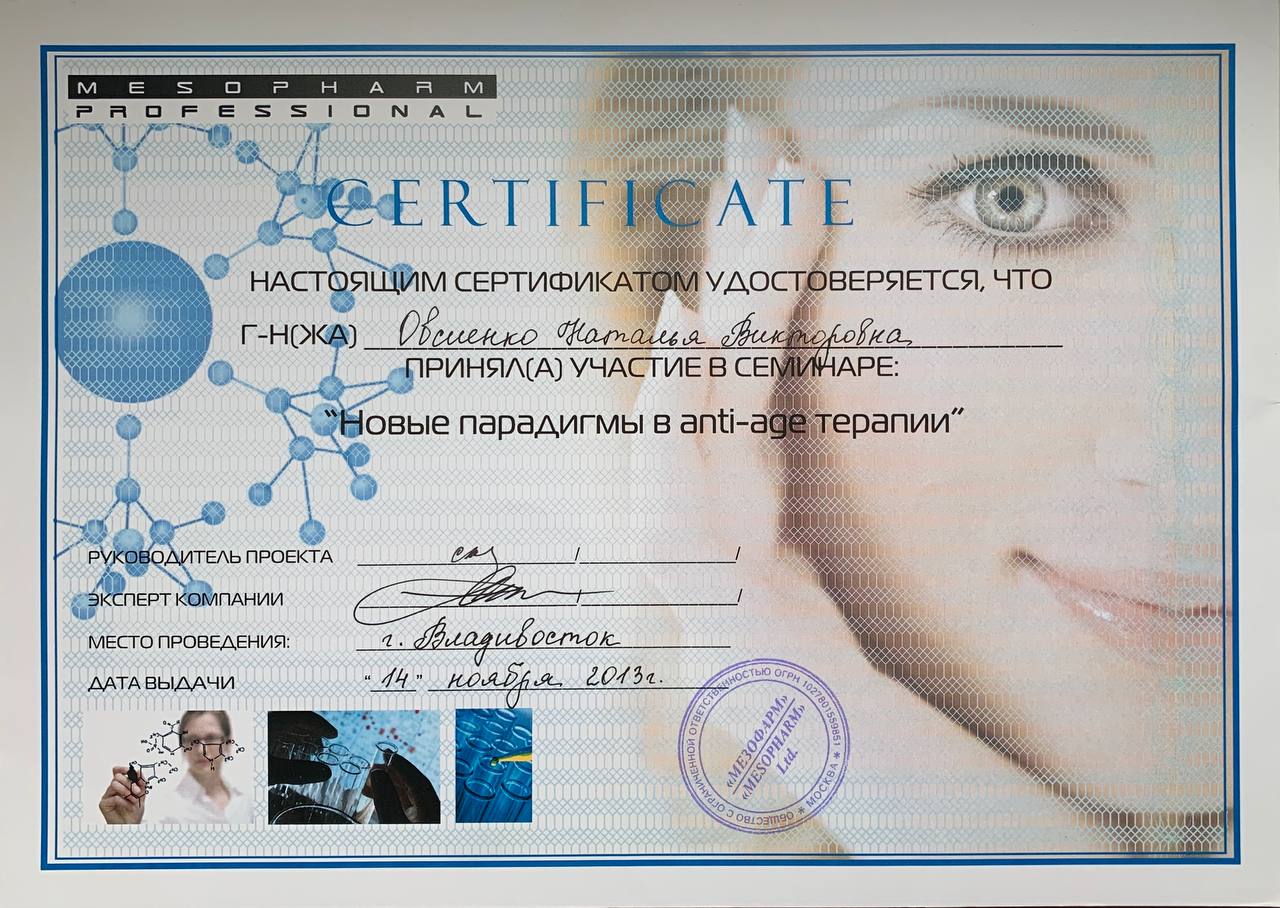 MESOPHARM
PROFESSIONAL
CERTIFICATE
НАСТОЯЩИМ СЕРТИФИКАТОМ УДОСТОВЕРЯЕТСЯ, ЧТО
Г-Н(ЖА) Овсиенко Наталья Викторовна
ПРИНЯЛ(А) УЧАСТИЕ В СЕМИНАРЕ:
“Новые парадигмы в anti-age терапии”
РУКОВОДИТЕЛЬ ПРОЕКТА / /
ЭКСПЕРТ КОМПАНИИ / /
МЕСТО ПРОВЕДЕНИЯ: г. Владивосток
ДАТА ВЫДАЧИ “14” ноября 2013г.
ОБЩЕСТВО С ОГРАНИЧЕННОЙ ОТВЕТСТВЕННОСТЬЮ ОГРН 1027801559851 * МОСКВА *
«МЕЗОФАРМ»
«MESOPHARM»
Ltd.